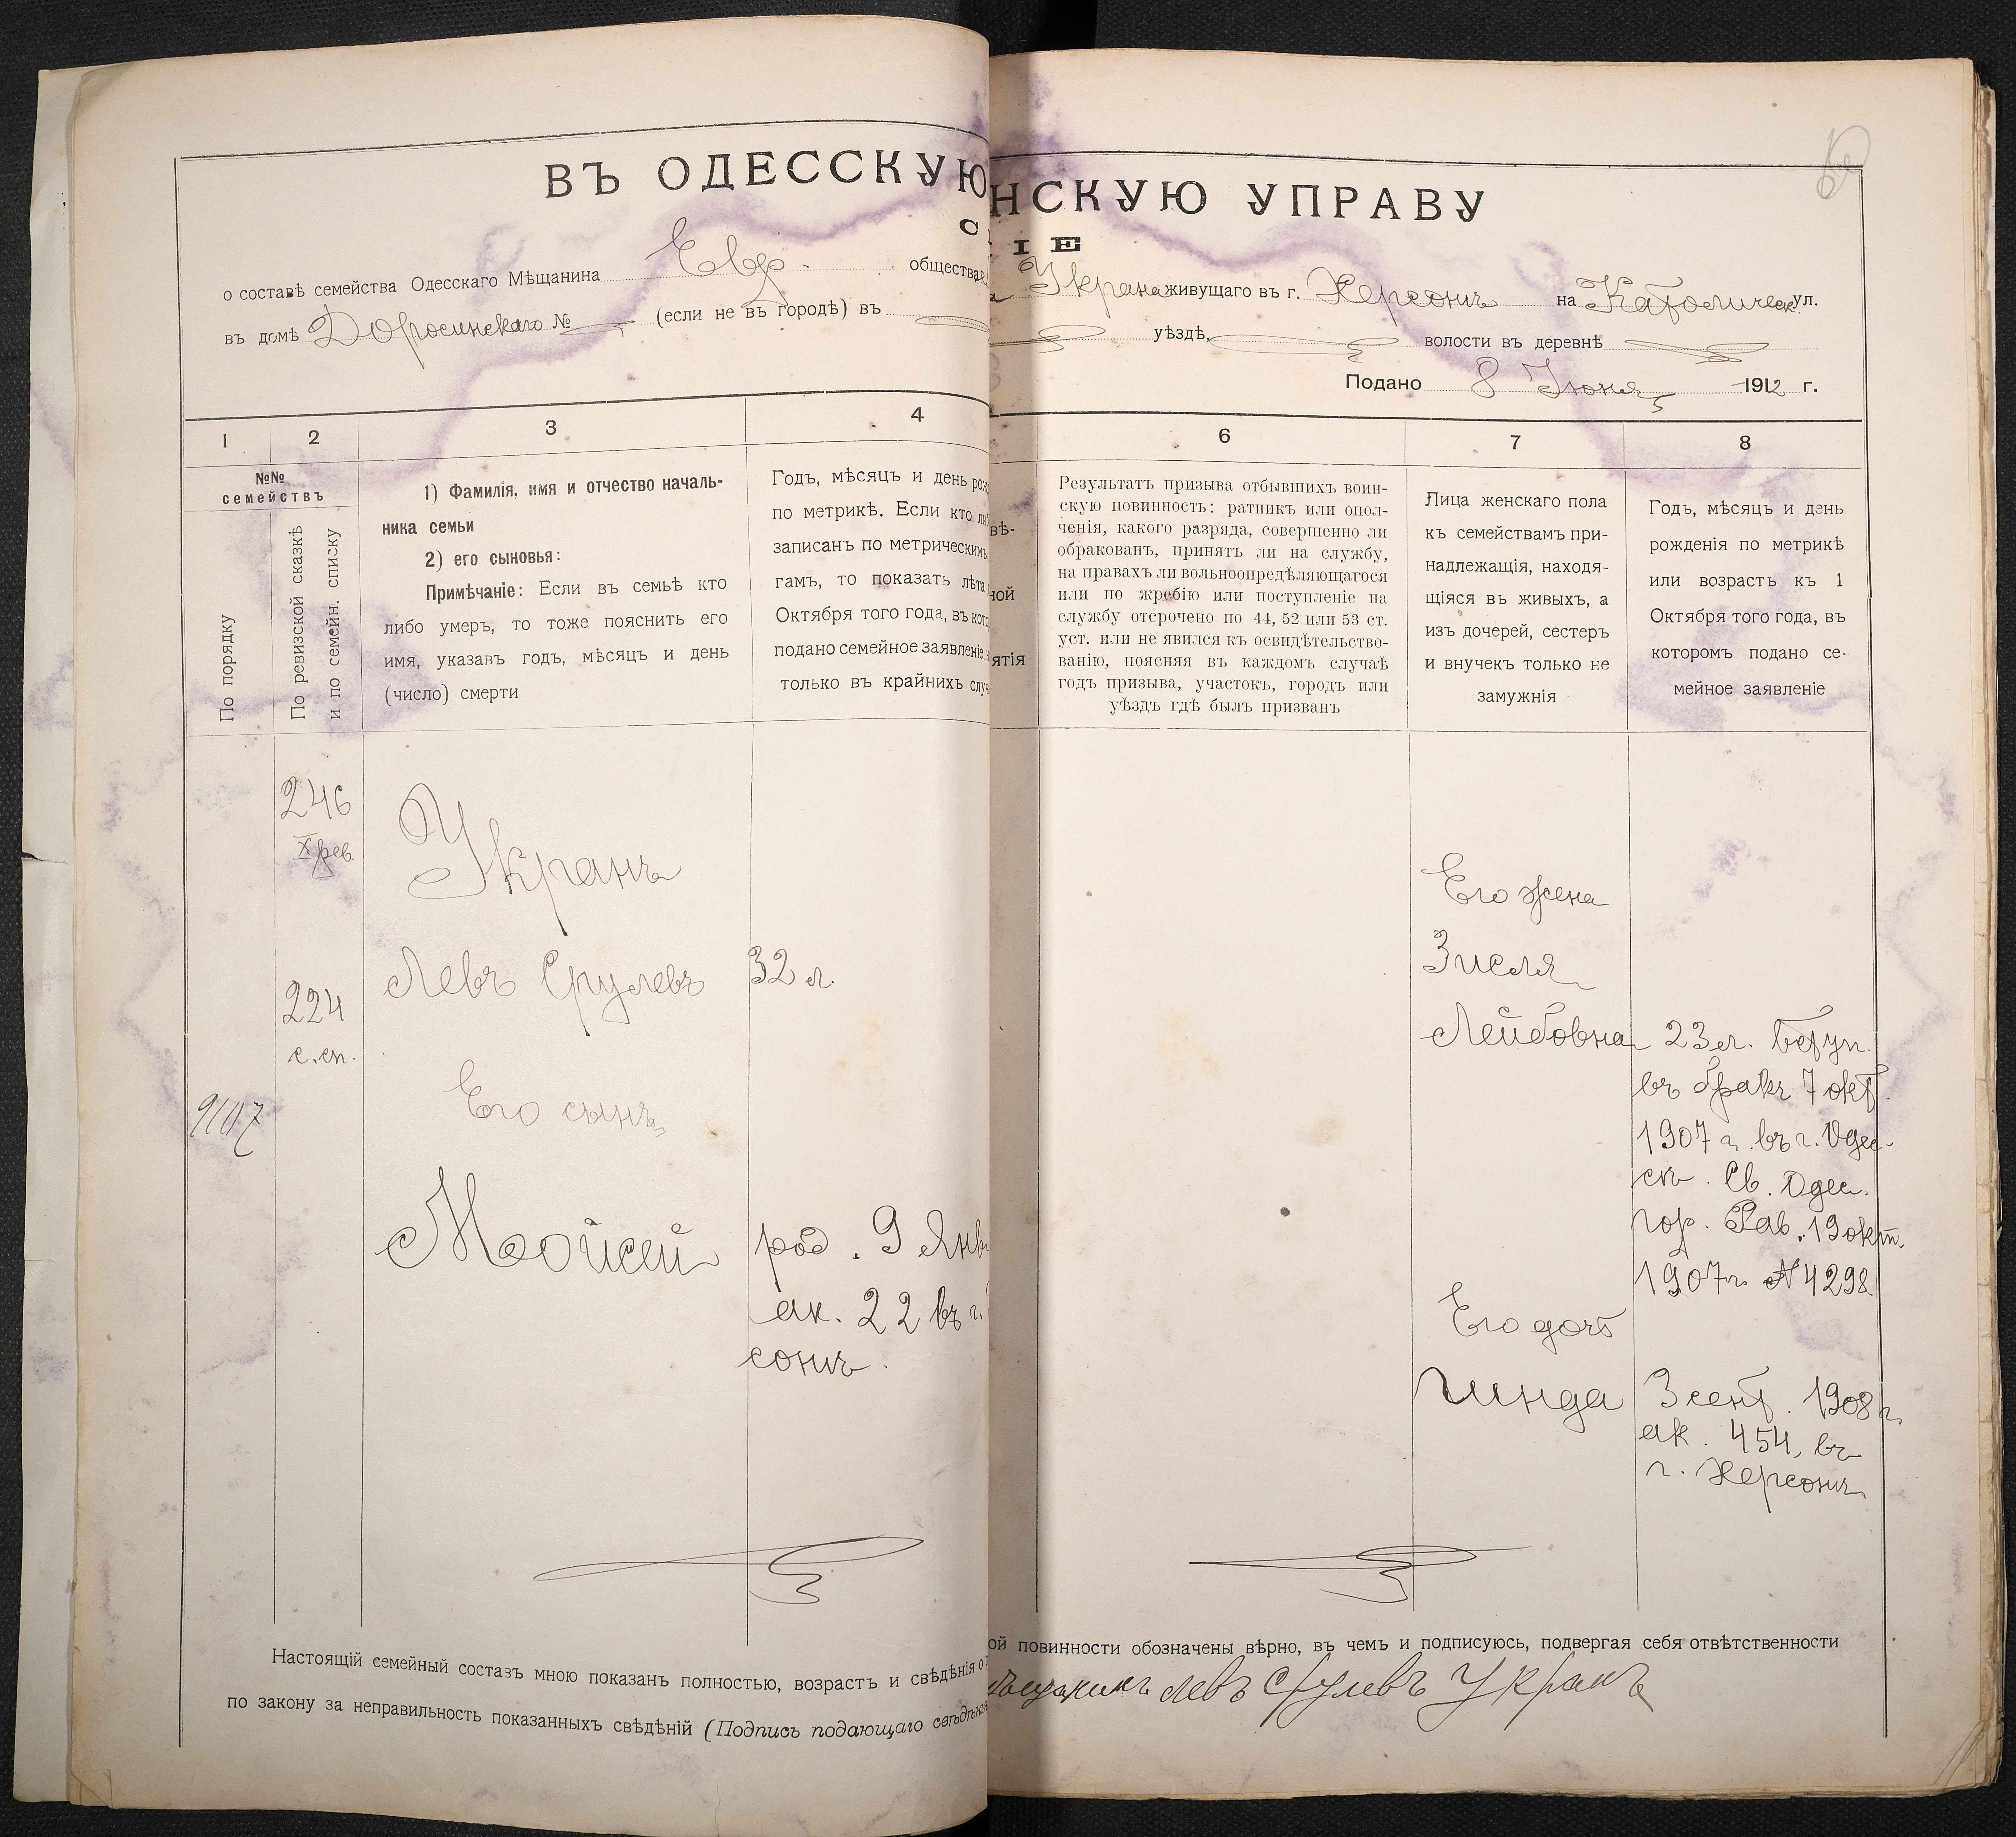 ВЪ ОДЕССКУЮ НСКУЮ УПРАВУ
С ІЕ
о составѣ семейства Одесскаго Мѣщанина Евр. общества Украна живущаго въ г. Херсонѣ на Католическ. ул.
въ домѣ Доросинскаго № (если не въ городѣ) въ уѣздѣ, волости въ деревнѣ
Подано 8 Іюня 1912 г.
1 2 3 4 6 7 8
№№ семействъ
По порядку
По ревизской сказкѣ
и по семейн. списку
1) Фамилія, имя и отчество началь-
ника семьи
2) его сыновья:
Примѣчаніе: Если въ семьѣ кто
либо умеръ, то тоже пояснить его
имя, указавъ годъ, мѣсяцъ и день
(число) смерти
Годъ, мѣсяцъ и день рож
по метрикѣ. Если кто ли
записанъ по метрическимъ
гамъ, то показать лѣта
Октября того года, въ кото
подано семейное заявленіе,
только въ крайнихъ случ
вѣ-
ной
ятія
Результатъ призыва отбывшихъ воин-
скую повинность: ратникъ или опол-
ченія, какого разряда, совершенно ли
обракованъ, принятъ ли на службу,
на правахъ ли вольноопредѣляющагося
или по жребію или поступленіе на
службу отсрочено по 44, 52 или 53 ст.
уст. или не явился къ освидѣтельство-
ванію, поясняя въ каждомъ случаѣ
годъ призыва, участокъ, городъ или
уѣздъ гдѣ былъ призванъ
Лица женскаго пола
къ семействамъ при-
надлежащія, находя-
щіяся въ живыхъ, а
изъ дочерей, сестеръ
и внучекъ только не
замужнія
Годъ, мѣсяцъ и день
рожденія по метрикѣ
или возрастъ къ 1
Октября того года, въ
которомъ подано се-
мейное заявленіе
246
X рев.
224
с. сп.
9107
Укранъ
Левъ Срулевъ 32 л.
Его сынъ
Мойсей
род. 9 Янв
ак. 22 въ г.
сонѣ.
Его жена
Зисля
Лейбовна
23 л. вступ.
въ бракъ 7 окт.
1907 г. въ г. Одес-
сѣ. Св. Одес.
гор. Рав. 19 окт.
1907 г. № 4298
Его дочь
Гинда
3 сент. 1908 г.
ак. 454, въ
г. Херсонѣ.
Настоящій семейный составъ мною показанъ полностью, возрастъ и свѣдѣнія о ой повинности обозначены вѣрно, въ чемъ и подписуюсь, подвергая себя отвѣтственности
по закону за неправильность показанныхъ свѣдѣній (Подпись подающаго свѣдѣнія
Левъ Срулевъ Укранъ